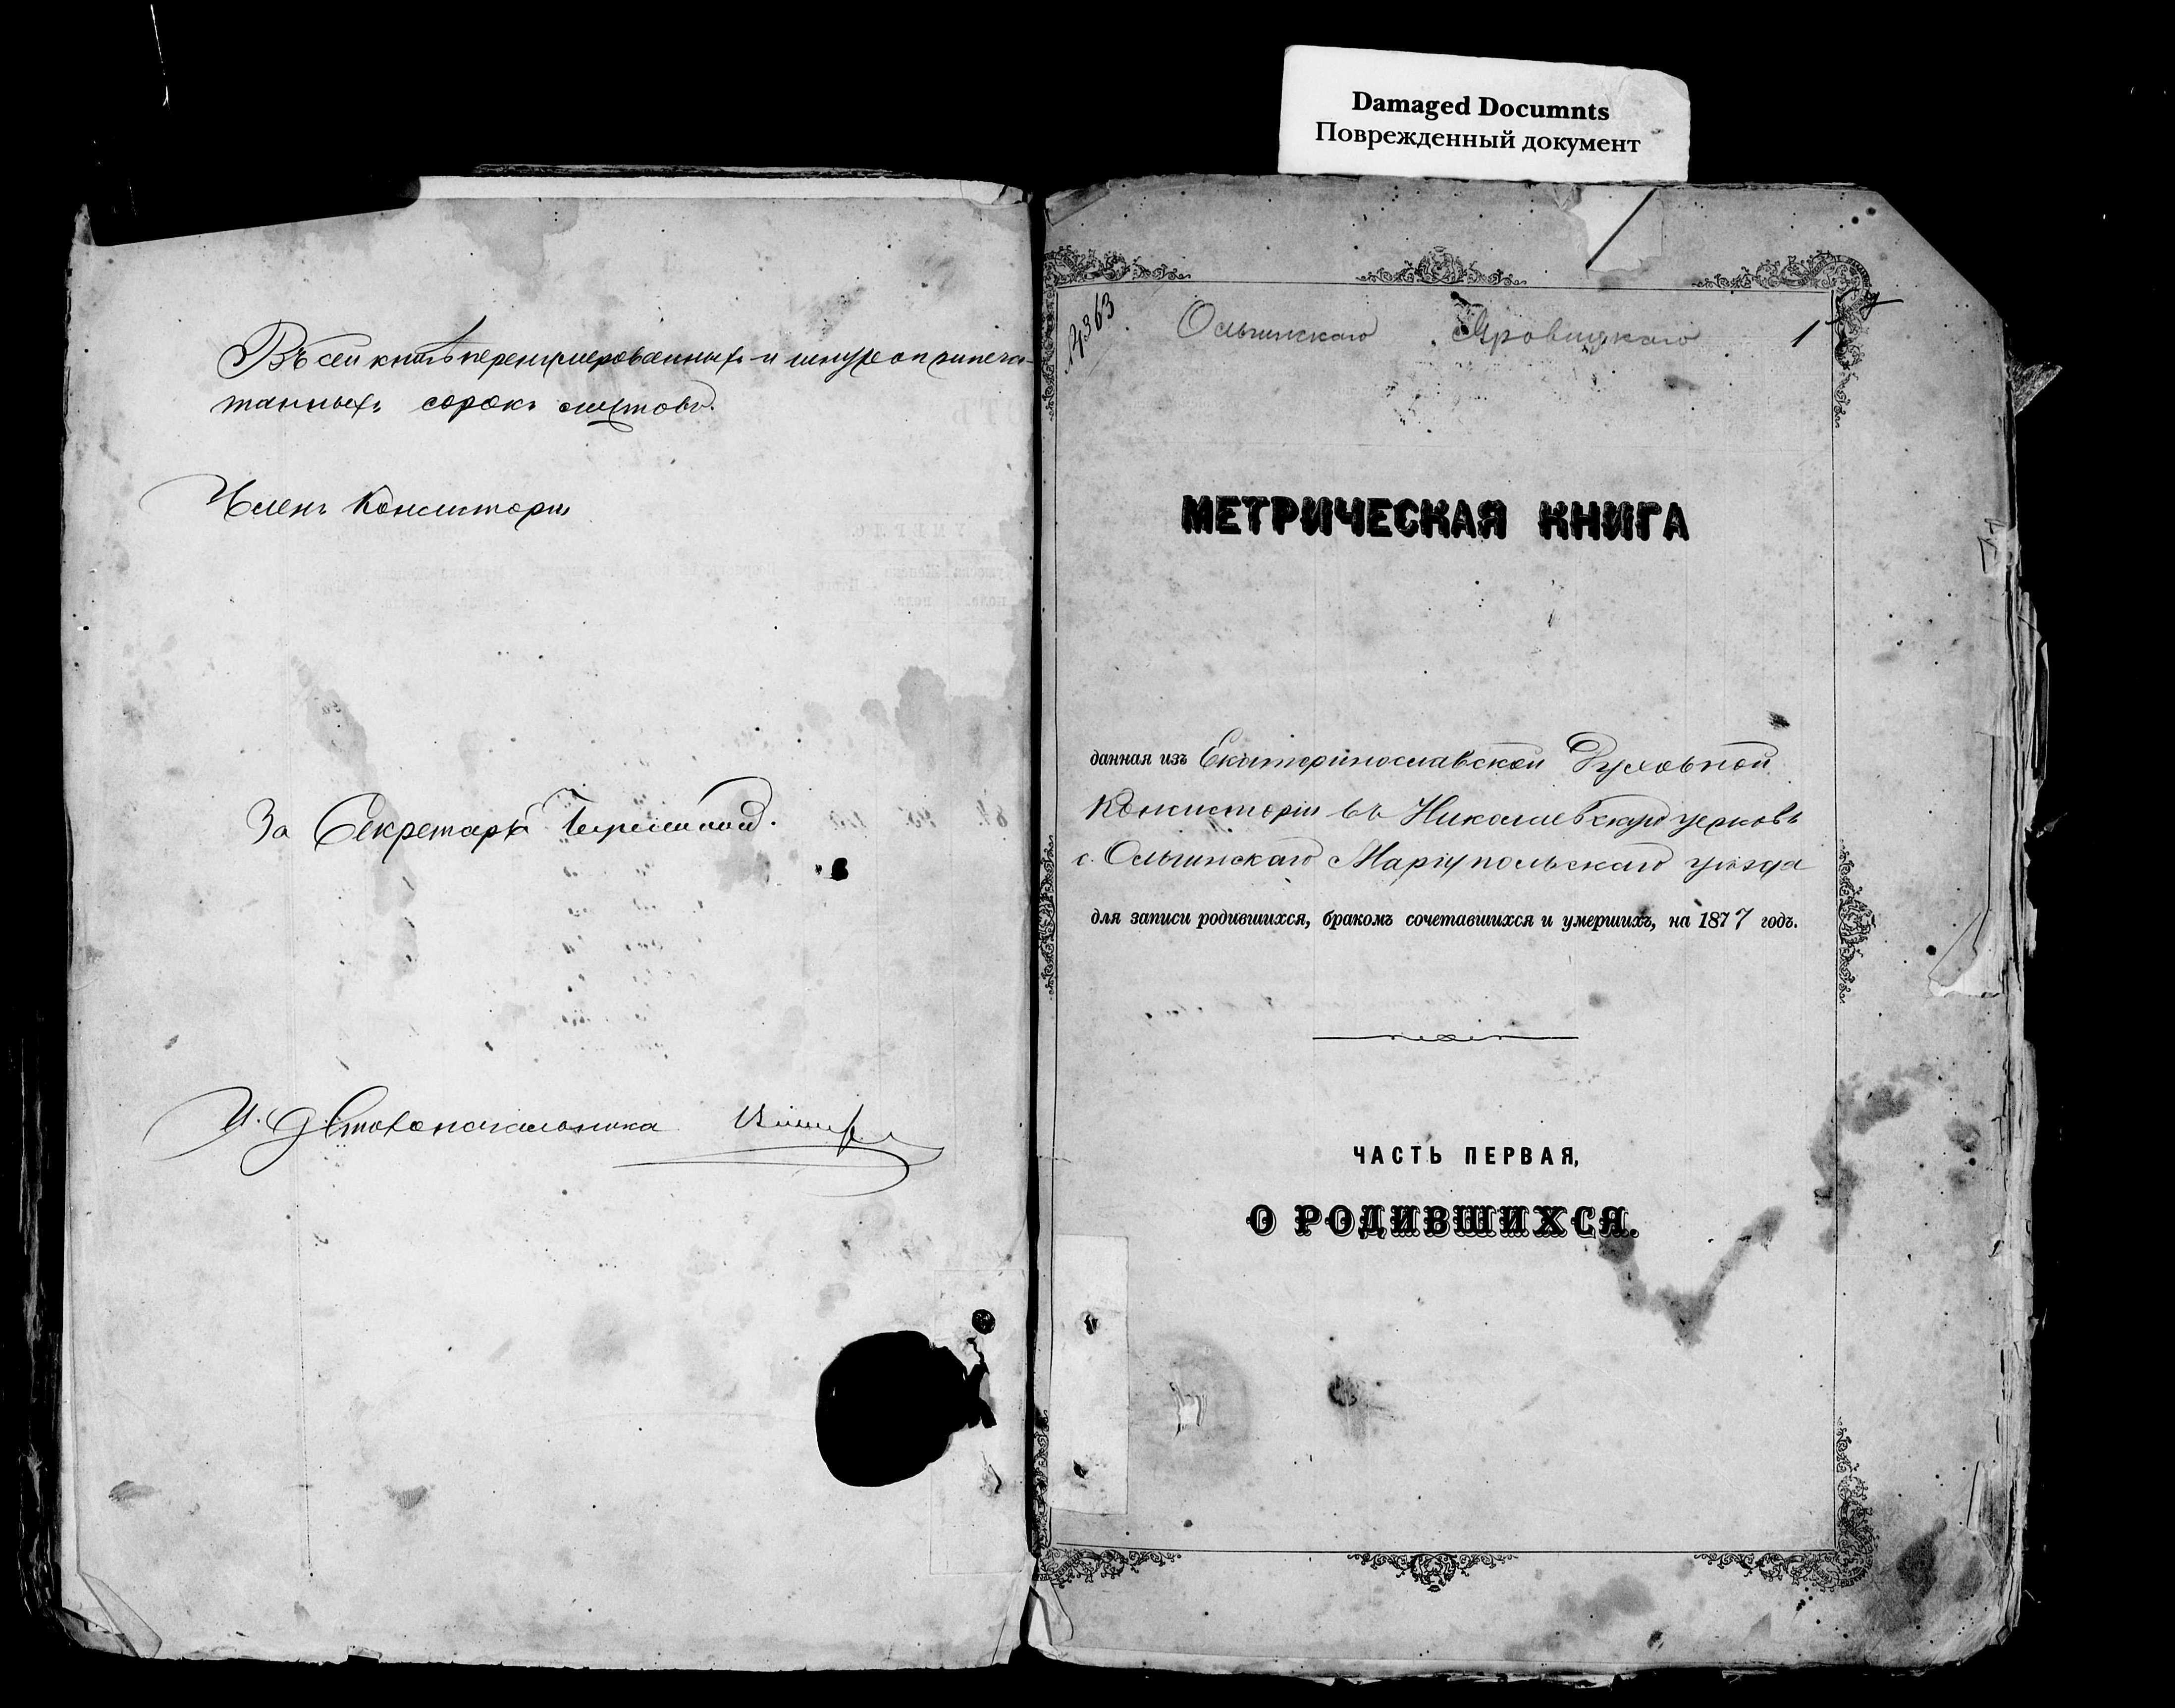 Damaged Documnts
Поврежденный документ
Въ сей книгѣ перенумерованныхъ и шнуро припеча-
танныхъ сорокъ листовъ.
Членъ Консисторіи
За Секретаря
И. д. Столоначальника
Ольгинскаго 1
МЕТРИЧЕСКАЯ КНИГА
данная изъ Екатеринославской Духовной
Консисторіи въ Николаевскую церковь
с. Ольгинскаго Маріупольскаго уѣзда
для записи родившихся, бракомъ сочетавшихся и умершихъ, на 1877 годъ.
ЧАСТЬ ПЕРВАЯ,
О РОДИВШИХСЯ.